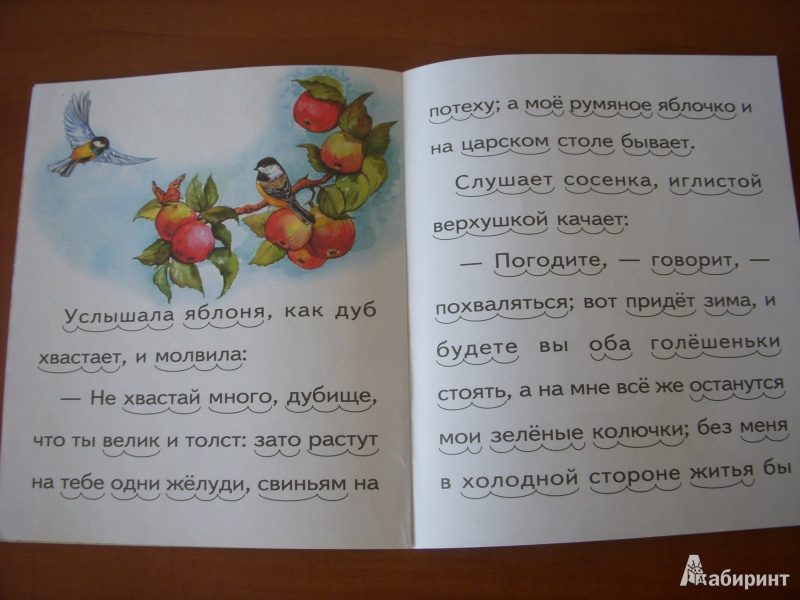 Услышала яблоня, как дуб
хвастает, и молвила:
— Не хвастай много, дубище,
что ты велик и толст: зато растут
на тебе одни жёлуди, свиньям на
потеху; а моё румяное яблочко и
на царском столе бывает.
Слушает сосенка, иглистой
верхушкой качает:
— Погодите, — говорит, —
похваляться; вот придёт зима, и
будете вы оба голёшеньки
стоять, а на мне всё же останутся
мои зелёные колючки; без меня
в холодной стороне житья бы
Лабиринт